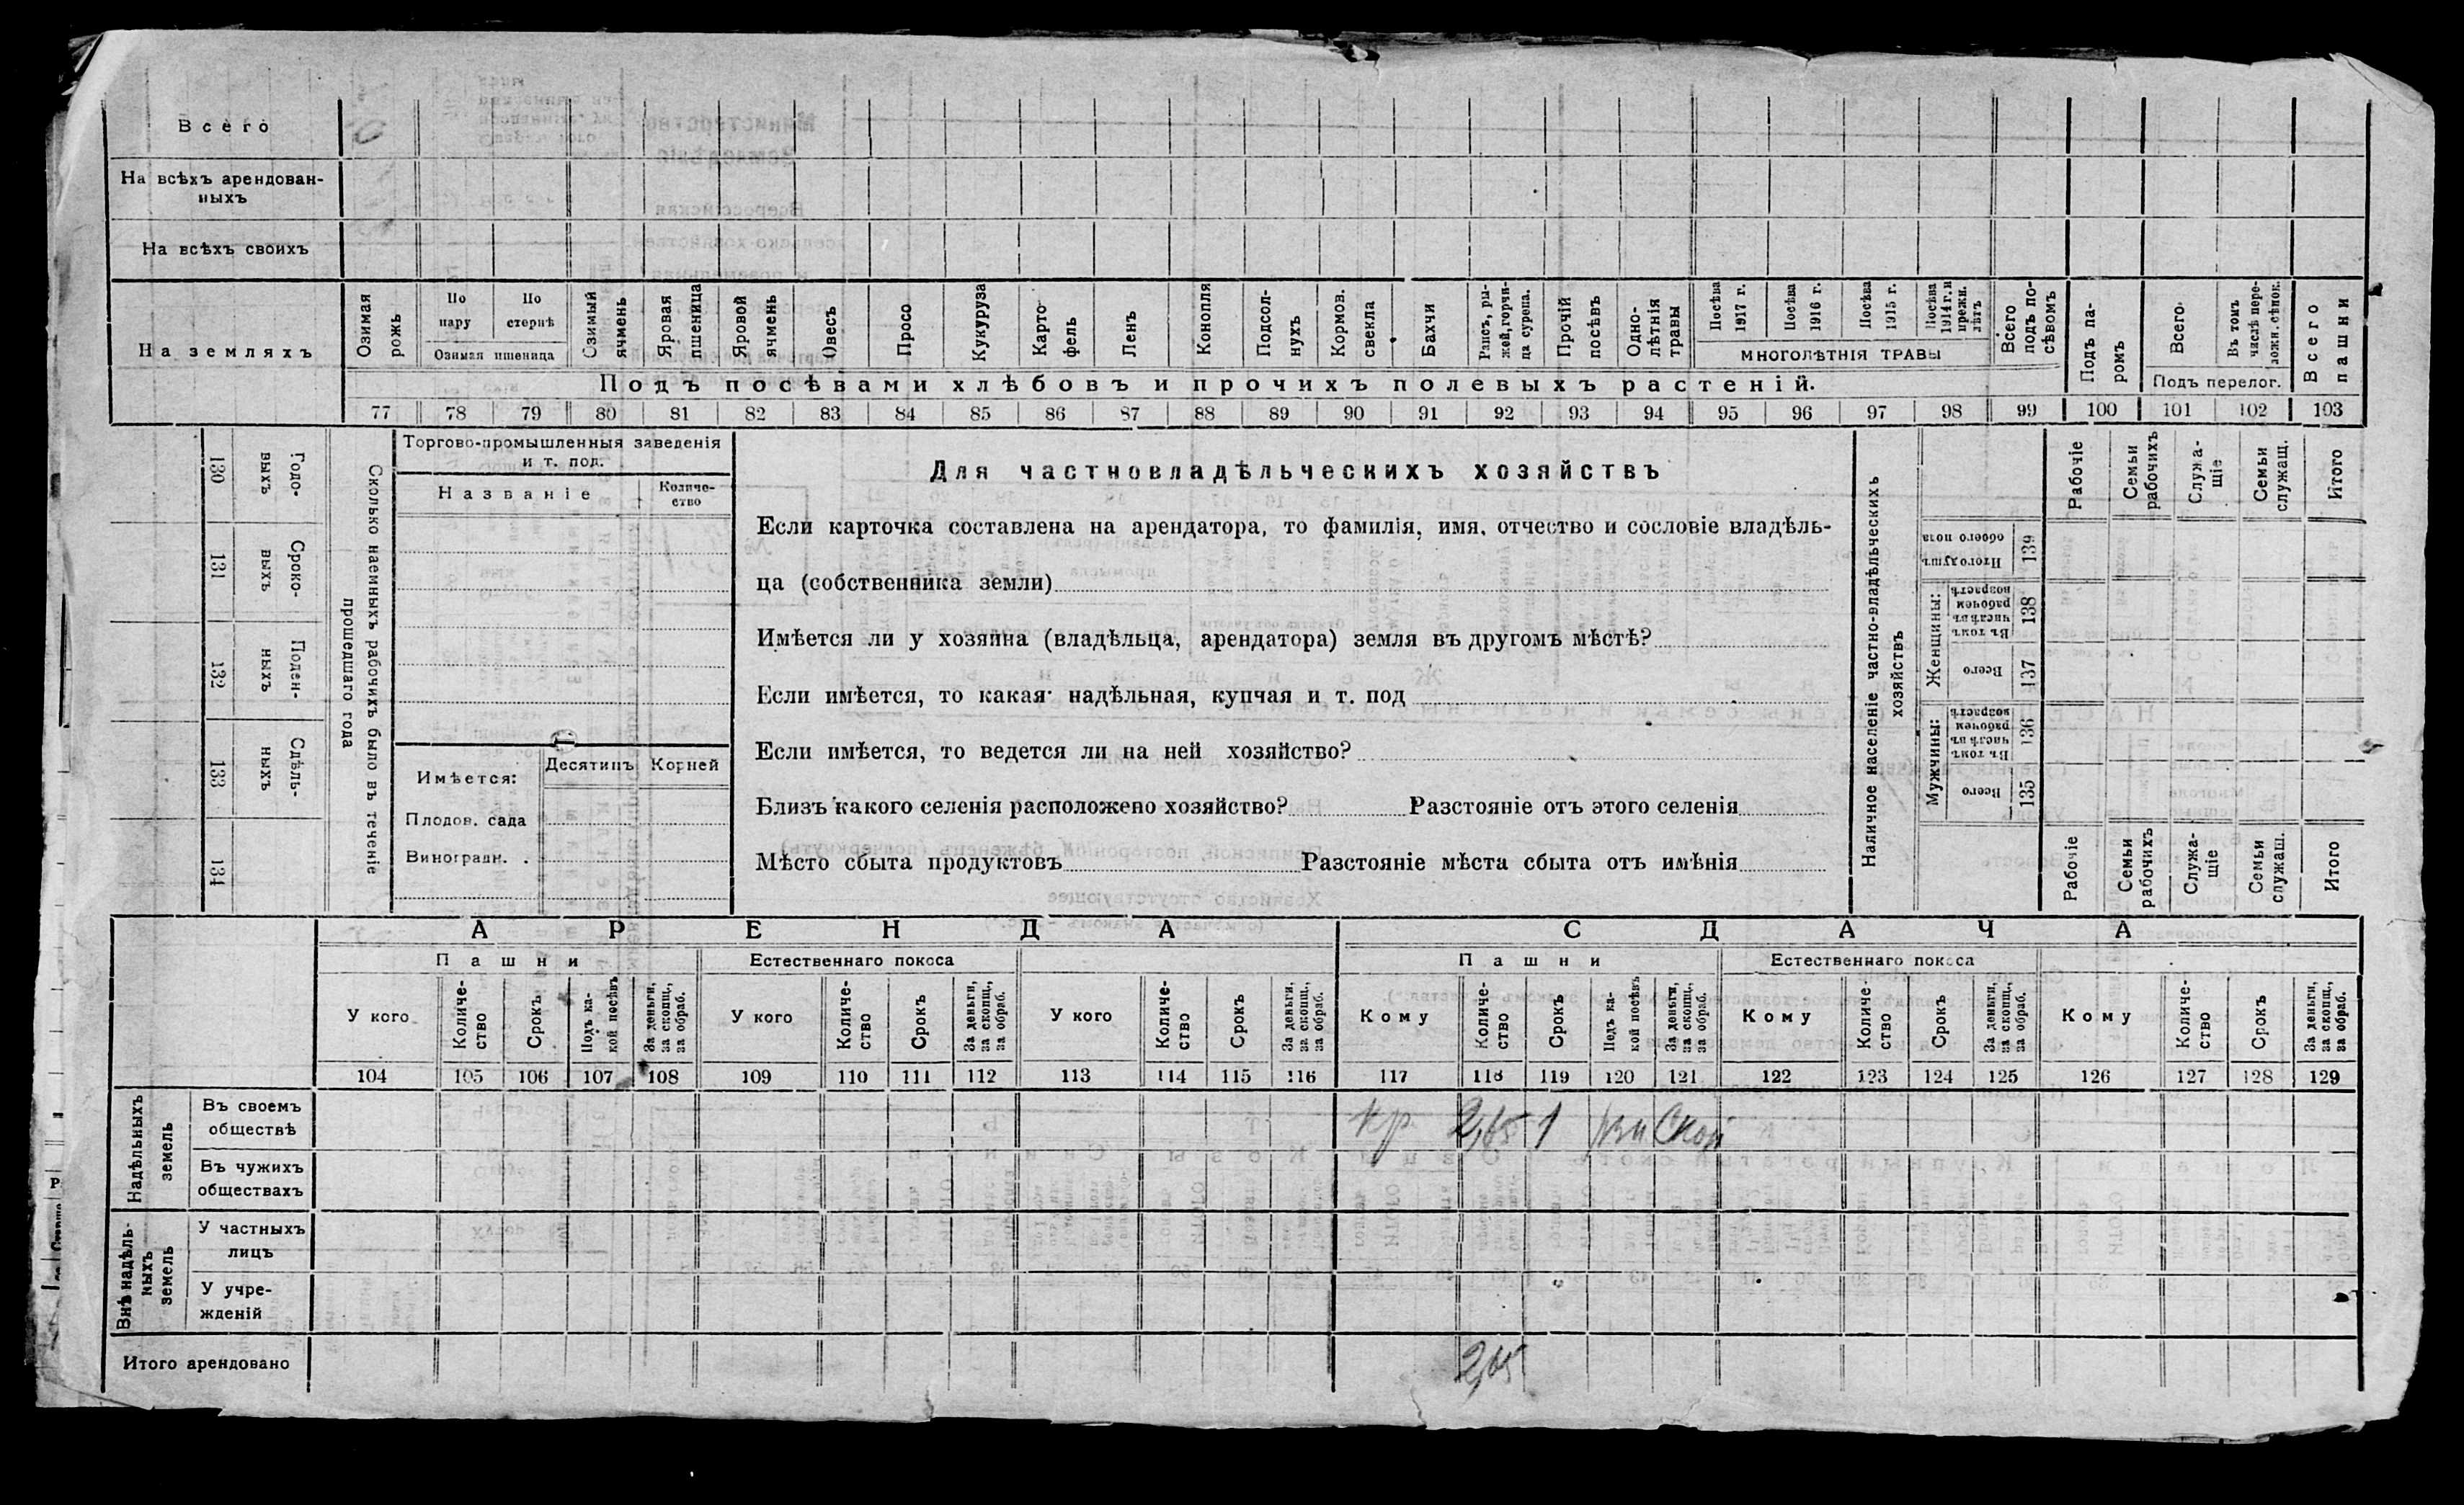 Всего
На всѣхъ арендован-
ныхъ
На всѣхъ своихъ
На земляхъ
Озимая рожь
По пару
По стернѣ
Озимая пшеница
Озимый ячмень
Яровая пшеница
Яровой ячмень
Овесъ
Просо
Кукуруза
Карто-
фель
Ленъ
Конопля
Подсол-
нухъ
Кормов. свекла
Бахчи
Рапсъ, ры-
жей, горчи-
ца сурепа.
Прочій посѣвъ
Одно-
лѣтнія травы
Посѣва 1917 г.
Посѣва 1916 г.
Посѣва 1915 г.
Посѣва 1914 г. и прежн. лѣтъ
МНОГОЛѢТНІЯ ТРАВЫ
Всего подъ по-
сѣвомъ
Подъ па-
ромъ
Всего
Въ томъ числѣ пере-
ложн. сѣнок.
Подъ перелог.
Всего пашни
Подъ посѣвами хлѣбовъ и прочихъ полевыхъ растеній.
77 78 79 80 81 82 83 84 85 86 87 88 89 90 91 92 93 94 95 96 97 98 99 100 101 102 103
Сколько наемныхъ рабочихъ было въ теченіе
прошедшаго года
Годо-
выхъ
130
Сроко-
выхъ
131
Поден-
ныхъ
132
Сдѣль-
ныхъ
133
134
Торгово-промышленныя заведенія
и т. под.
Названіе
Количе-
ство
Имѣется:
Десятинъ
Корней
Плодов. сада
Виноградн. .
Для частновладѣльческихъ хозяйствъ
Если карточка составлена на арендатора, то фамилія, имя, отчество и сословіе владѣль-
ца (собственника земли)
Имѣется ли у хозяина (владѣльца, арендатора) земля въ другомъ мѣстѣ?
Если имѣется, то какая: надѣльная, купчая и т. под
Если имѣется, то ведется ли на ней хозяйство?
Близъ какого селенія расположено хозяйство? Разстояніе отъ этого селенія
Мѣсто сбыта продуктовъ Разстояніе мѣста сбыта отъ имѣнія
Наличное населеніе частно-владѣльческихъ
хозяйствъ
Рабочіе
Семьи рабочихъ
Служа-
щіе
Семьи служащ.
Итого
Итого душъ обоего пола
139
Женщины:
Въ томъ числѣ въ рабочем возрастѣ
138
Всего
137
Мужчины:
Въ томъ числѣ въ рабочем возрастѣ
136
Всего
135
Рабочіе
Семьи рабочихъ
Служа-
щіе
Семьи служащ.
Итого
АРЕНДА
СДАЧА
Пашни
Естественнаго покоса
Пашни
Естественнаго покоса
У кого
Количе-
ство
Срокъ
Подъ ка-
кой посѣвъ
За деньги, за скопщ., за обраб.
У кого
Количе-
ство
Срокъ
За деньги, за скопщ., за обраб.
У кого
Количе-
ство
Срокъ
За деньги, за скопщ., за обраб.
Кому
Количе-
ство
Срокъ
Подъ ка-
кой посѣвъ
За деньги, за скопщ., за обраб.
Кому
Количе-
ство
Срокъ
За деньги, за скопщ., за обраб.
Кому
Количе-
ство
Срокъ
За деньги, за скопщ., за обраб.
104 105 106 107 108 109 110 111 112 113 114 115 116 117 118 119 120 121 122 123 124 125 126 127 128 129
Надѣльныхъ земель
Въ своемъ
обществѣ
кр 2,65 1
Въ чужихъ
обществахъ
Внѣ надѣль-
ныхъ земель
У частныхъ
лицъ
У учре-
жденій
Итого арендовано
2,65